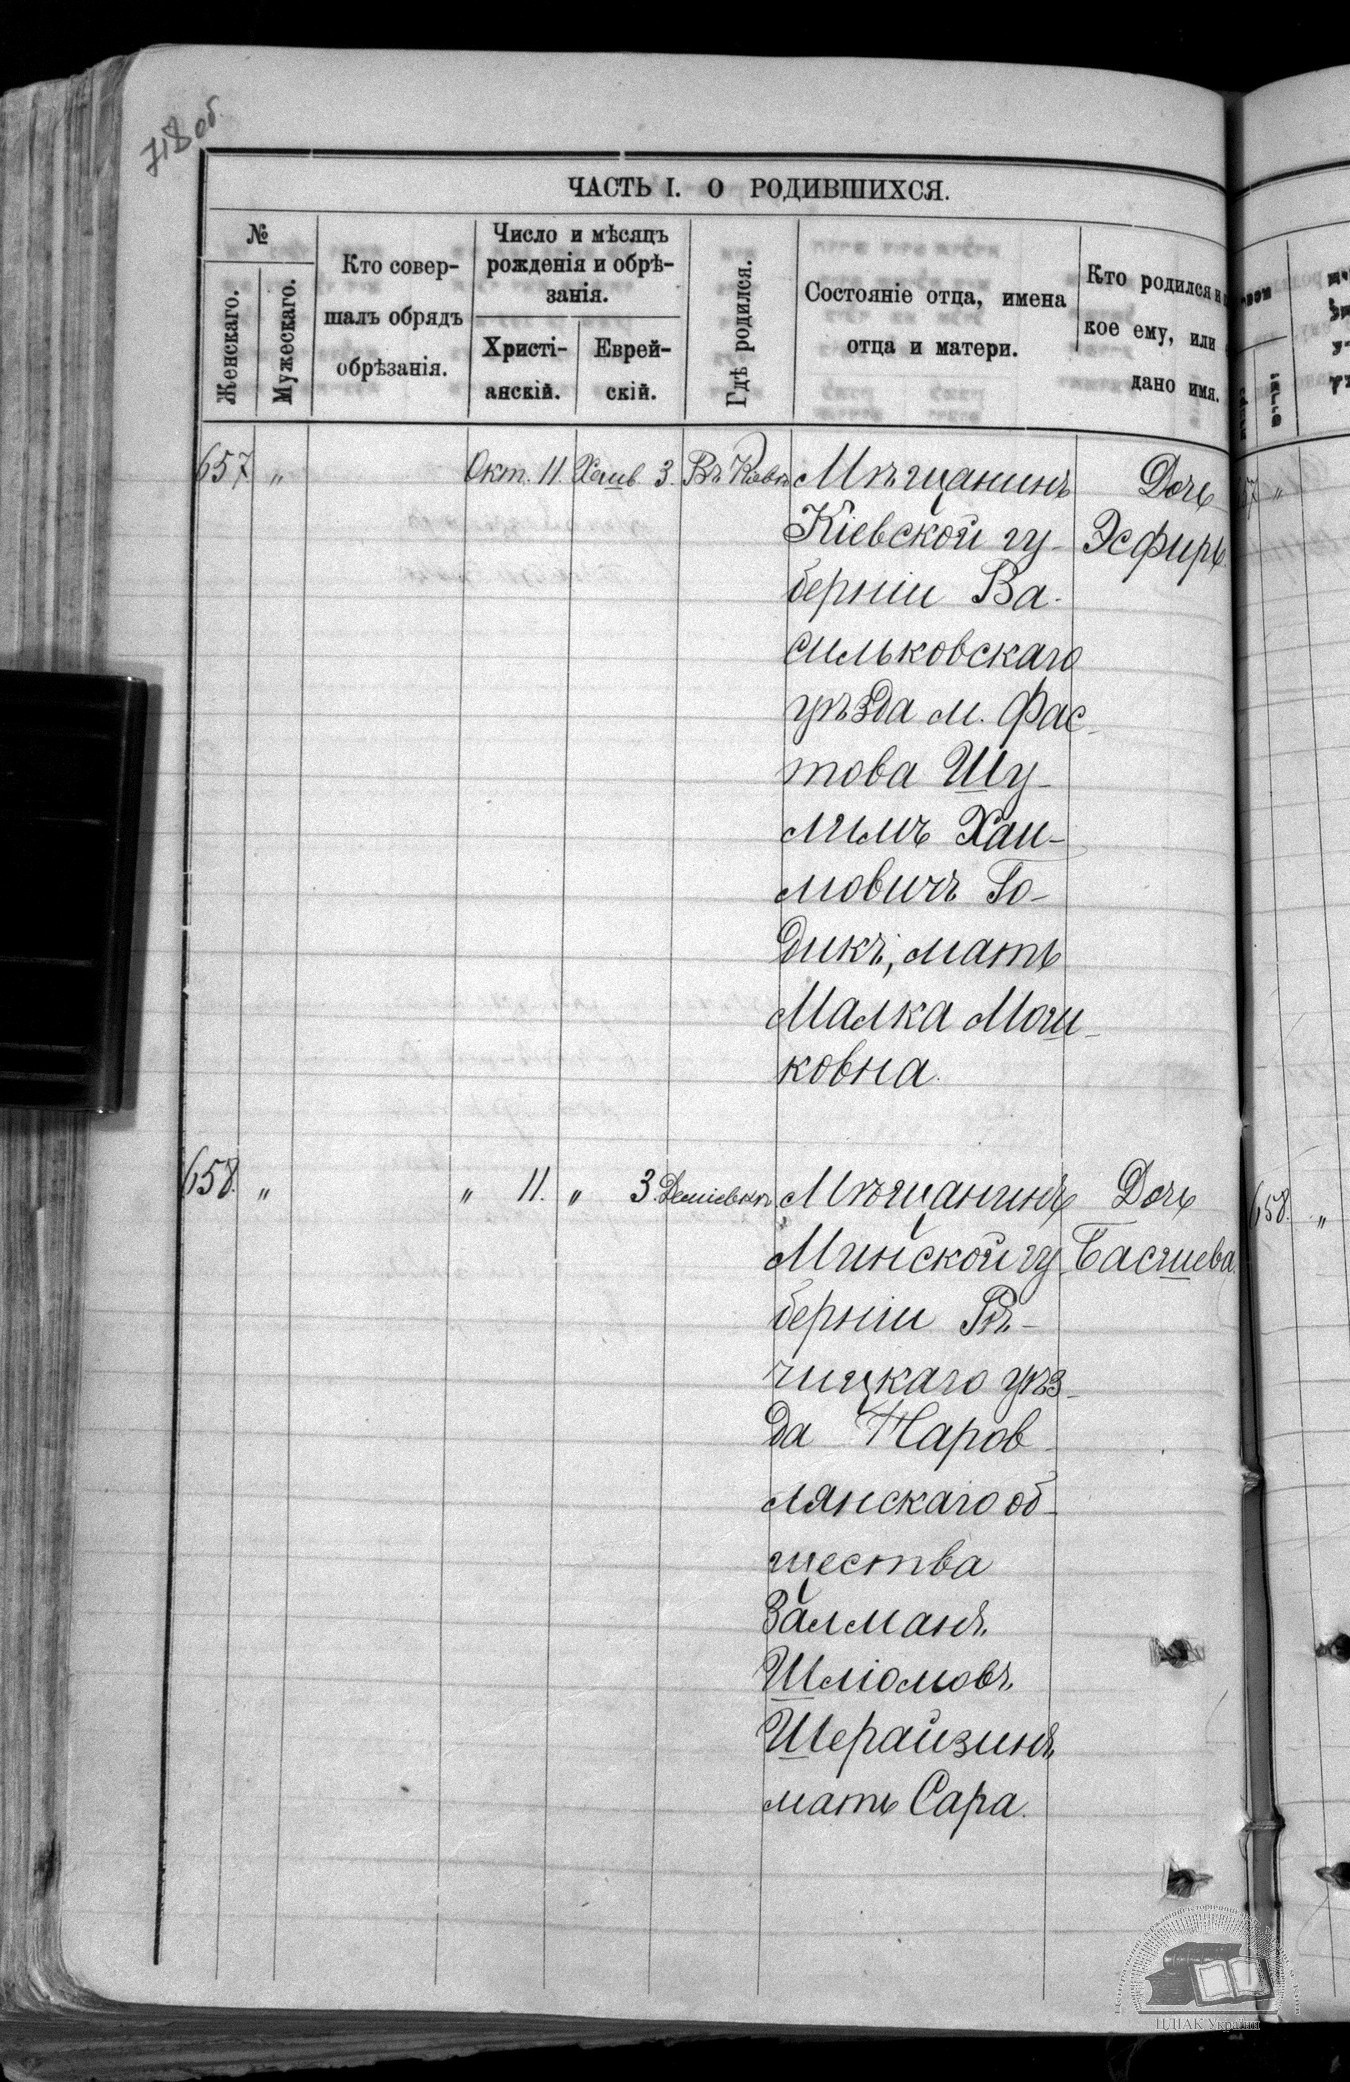 718 об.
ЧАСТЬ I. О РОДИВШИХСЯ.
№
Женскаго.
Мужескаго.
Кто совер-
шалъ обрядъ
обрѣзанія.
Число и мѣсяцъ
рожденія и обрѣ-
занія.
Христі-
анскій.
Еврей-
скій.
Гдѣ родился.
Состояніе отца, имена
отца и матери.
Кто родился и
кое ему, или
дано имя.
657 " Окт. 11. Хешв. 3. Въ Кіевѣ Мѣщанинъ Дочь
Кіевской гу- Эсфирь
берніи Ва-
сильковскаго
уѣзда м. Фас-
това Шу-
лимъ Хаи-
мовичъ Го-
дикъ, мать
Малка Мош-
ковна.
658. " " 11. " 3. Деміевкѣ Мѣщанинъ Дочь
Минской гу- Басшева.
берніи Рѣ-
чицкаго уѣз-
да Наров-
лянскаго об-
щества
Залманъ
Шліомовъ
Шерайзинъ,
мать Сара.
657 "
658. "
ЦДІАК України